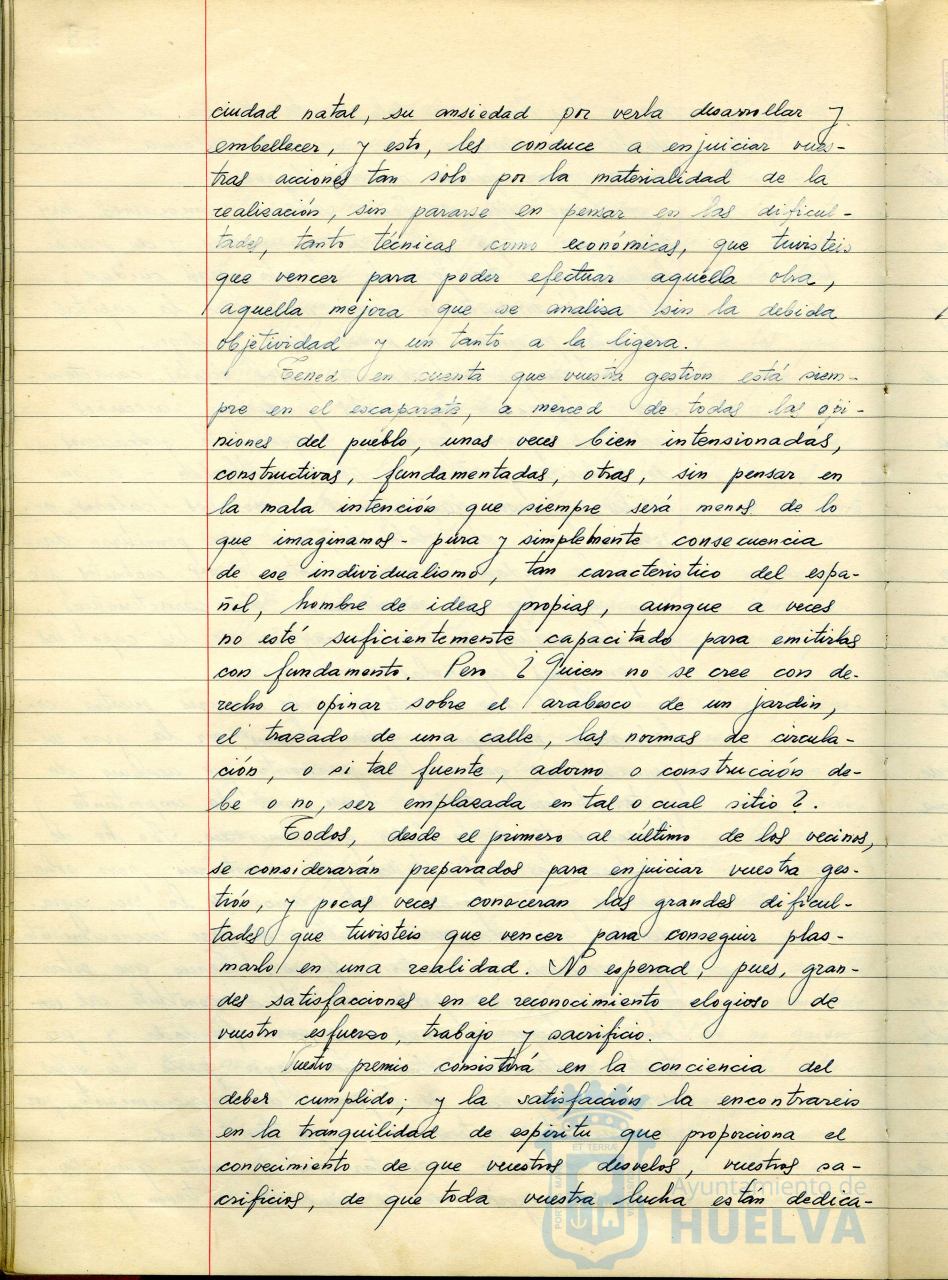 ciudad natal, su ansiedad por verla desarrollar y
embellecer, y esto, les conduce a enjuiciar vues-
tras acciones tan solo por la materialidad de la
realización, sin pararse en pensar en las dificul-
tades, tanto técnicas como económicas, que tuvisteis
que vencer para poder efectuar aquella obra,
aquella mejora que se analiza sin la debida
objetividad y un tanto a la ligera.
Tened en cuenta que vuestra gestion está siem-
pre en el escaparate, a merced de todas las opi-
niones del pueblo, unas veces bien intensionadas,
constructivas, fundamentadas, otras, sin pensar en
la mala intención que siempre será menos de lo
que imaginamos - pura y simplemente consecuencia
de ese individualismo, tan caracteristico del espa-
ñol, hombre de ideas propias, aunque a veces
no esté suficientemente capacitado para emitirlas
con fundamento. Pero ¿Quien no se cree con de-
recho a opinar sobre el arabesco de un jardin,
el trazado de una calle, las normas de circula-
ción, o si tal fuente, adorno o construcción de-
be o no, ser emplazada en tal o cual sitio?.
Todos, desde el primero al último de los vecinos,
se considerarán preparados para enjuiciar vuestra ges-
tión, y pocas veces conoceran las grandes dificul-
tades que tuvisteis que vencer para conseguir plas-
marlo en una realidad. No esperad, pues, gran-
des satisfacciones en el reconocimiento elogioso de
vuestro esfuerzo, trabajo y sacrificio.
Vuestro premio consistirá en la conciencia del
deber cumplido; y la satisfacción la encontrareis
en la tranquilidad de espiritu que proporciona el
convecimiento de que vuestros desvelos, vuestros sa-
crificios, de que toda vuestra lucha están dedica-
ET TERRA
Ayuntamiento de
HUELVA